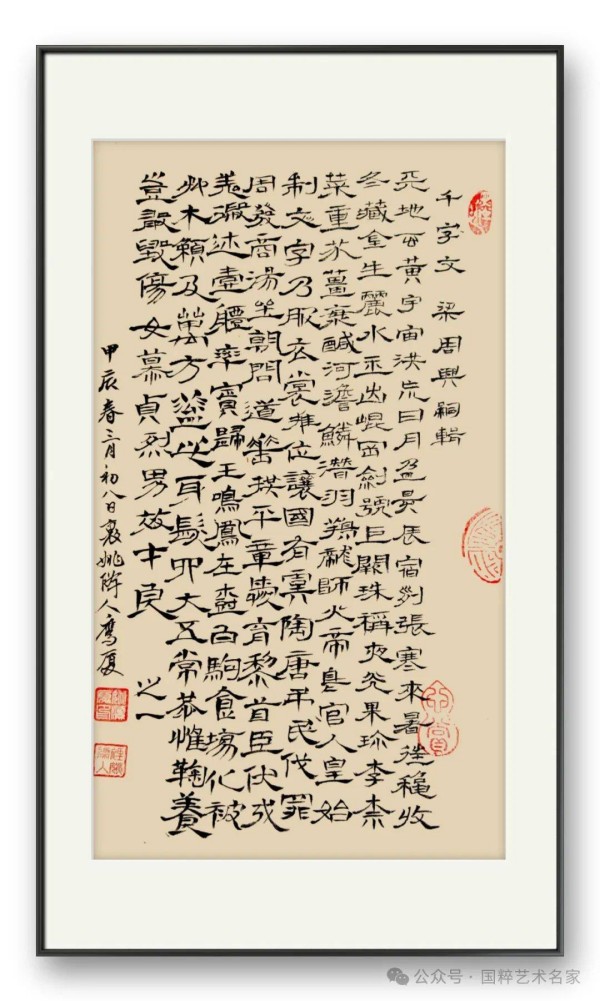 千字文 梁周興嗣輯
天地玄黃宇宙洪荒日月盈昃辰宿列張寒來暑往穐收
冬藏金生麗水玉出崐岡劍號巨闕珠稱夜光果珍李柰
菜重芥薑海鹹河澹鱗潛羽翔龍師火帝鳥官人皇始
制文字乃服衣裳推位讓國有虞陶唐弔民伐罪
周發商湯坐朝問道垂拱平章愛育黎首臣伏戎
羌遐邇壹體率賓歸王鳴鳳在樹白駒食場化被
艸木賴及萬方蓋此身髮四大五常恭惟鞠養
豈敢毀傷女慕貞烈男效才良 之一
甲辰春三月初八日
公众号·国粹艺术名家